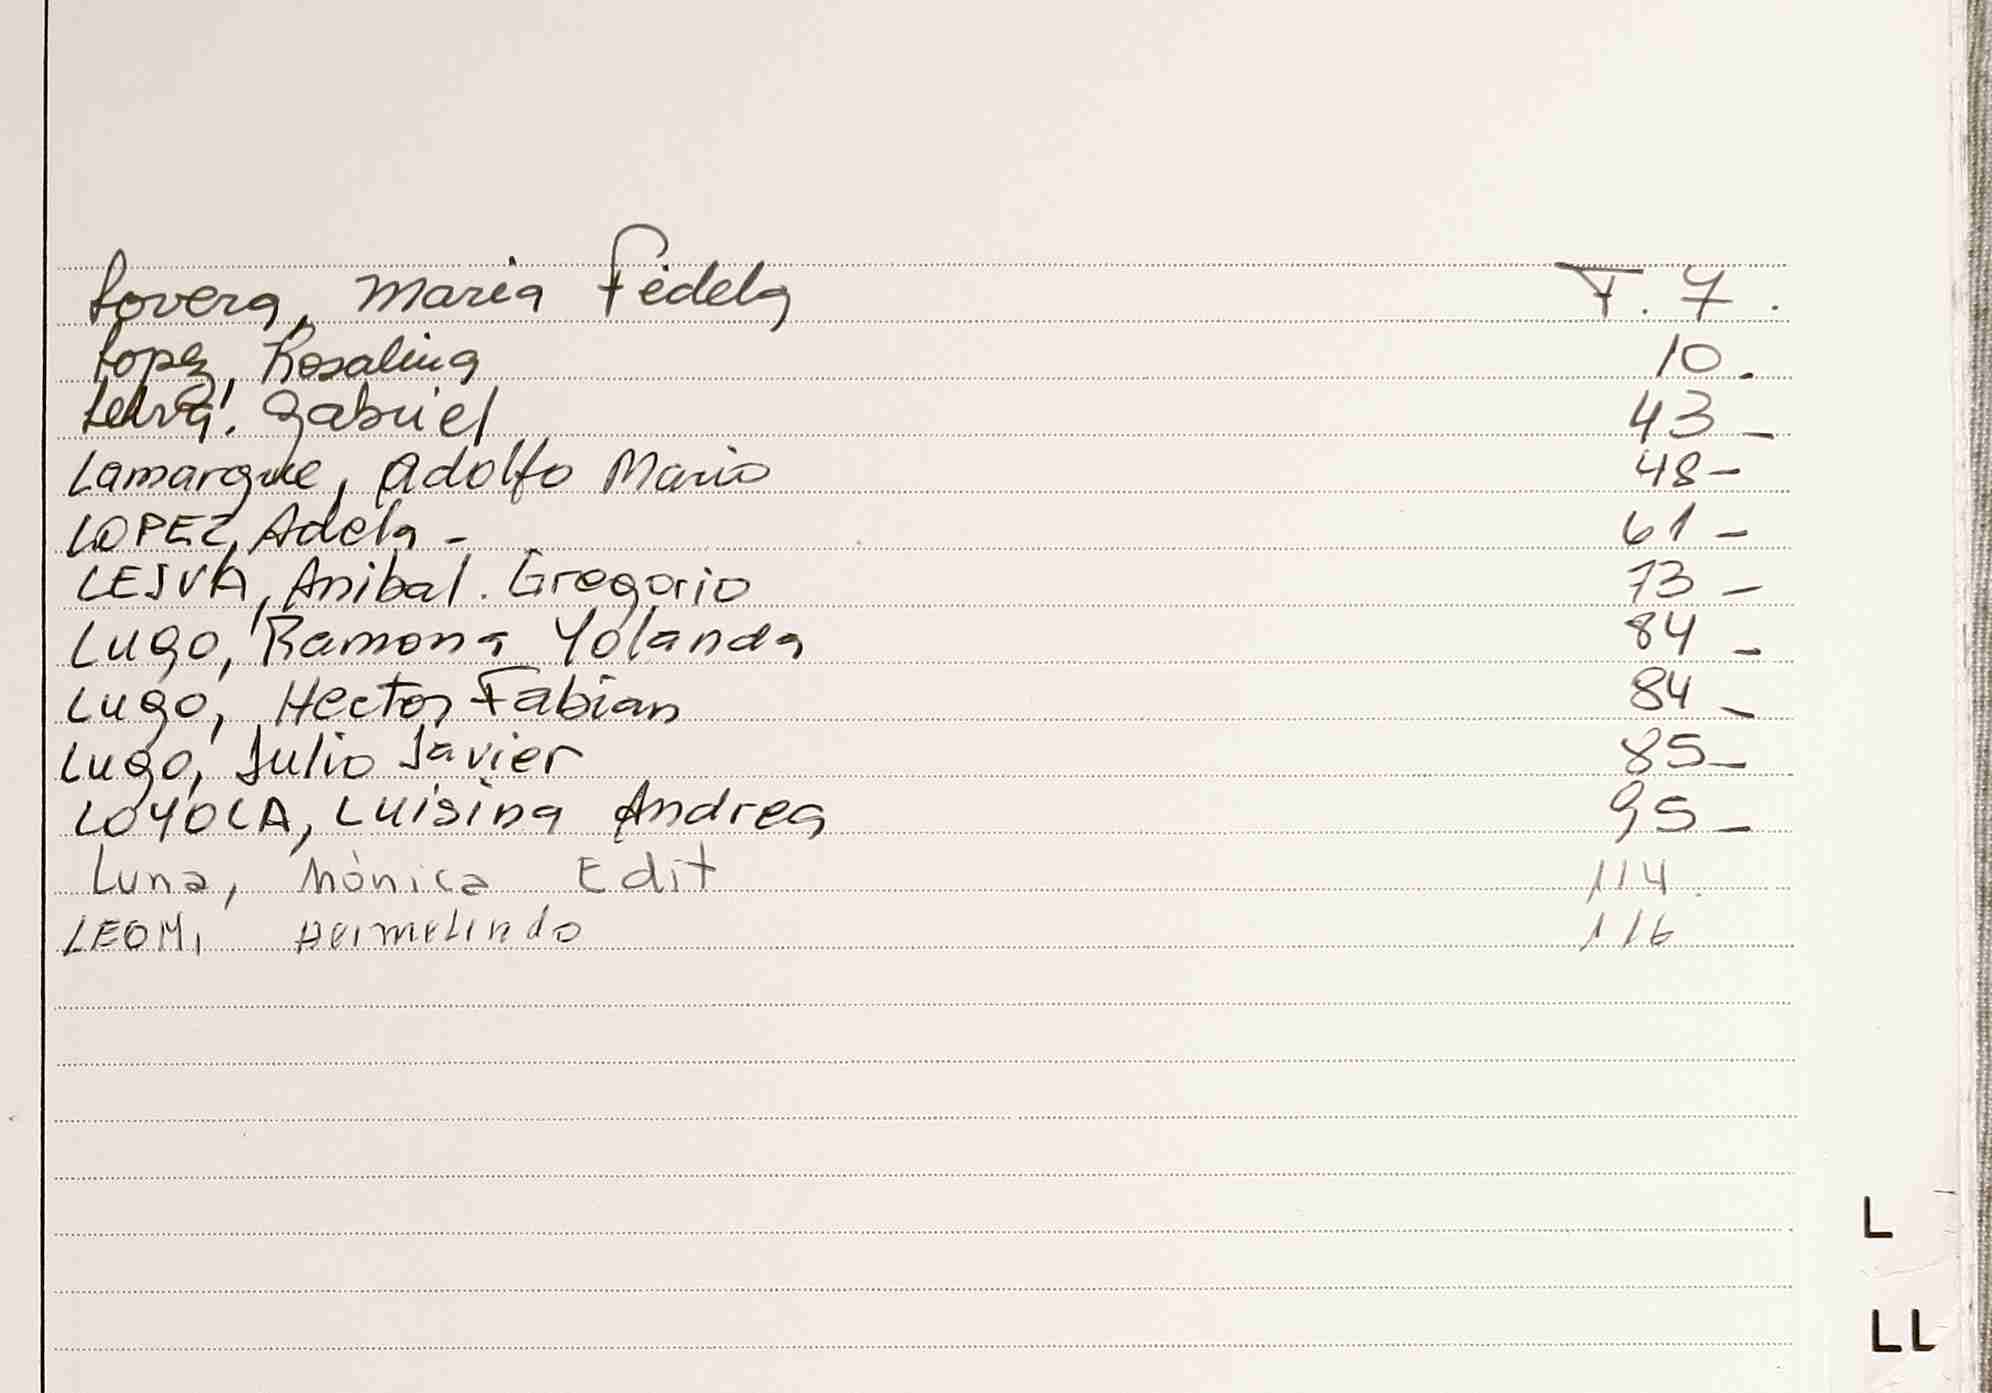 Lovera, Maria Fidela F. 7.
Lopez, Rosalina 10.
Gabriel 43-
Lamarque, Adolfo Mario 48-
LOPEZ, Adela - 61-
LESVA, Anibal. Gregorio 73-
Lugo, Ramona Yolanda 84-
Lugo, Hector Fabian 84-
Lugo, Julio Javier 85-
LOYOLA, Luisina Andrea 95-
Luna, Mónica Edit 114.
LEOM, Hermelindo 116
L
LL